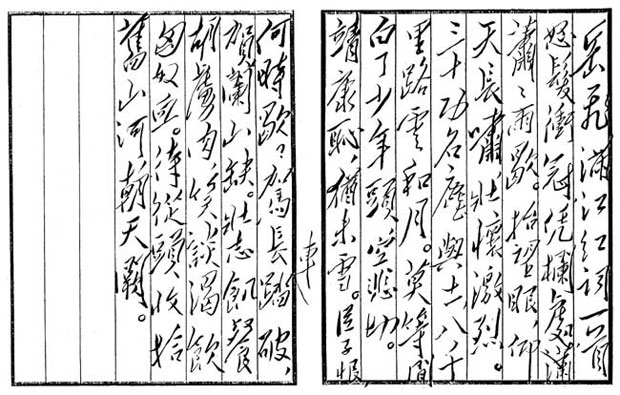 岳飛滿江紅詞一首
怒髮衝冠凭欄處瀟
瀟〻雨歇。抬望眼,仰
天長嘯,壯懷激烈。
三十功名塵與土,八千
里路雲和月。莫等閒
白了少年頭空悲切。
靖康恥,猶未雪。臣子恨,
車
何時歇〻駕長踏破,
賀蘭山缺。壯志飢餐
胡虜肉,笑談渴飲
匈奴血。待從頭收拾
舊山河,朝天闕。